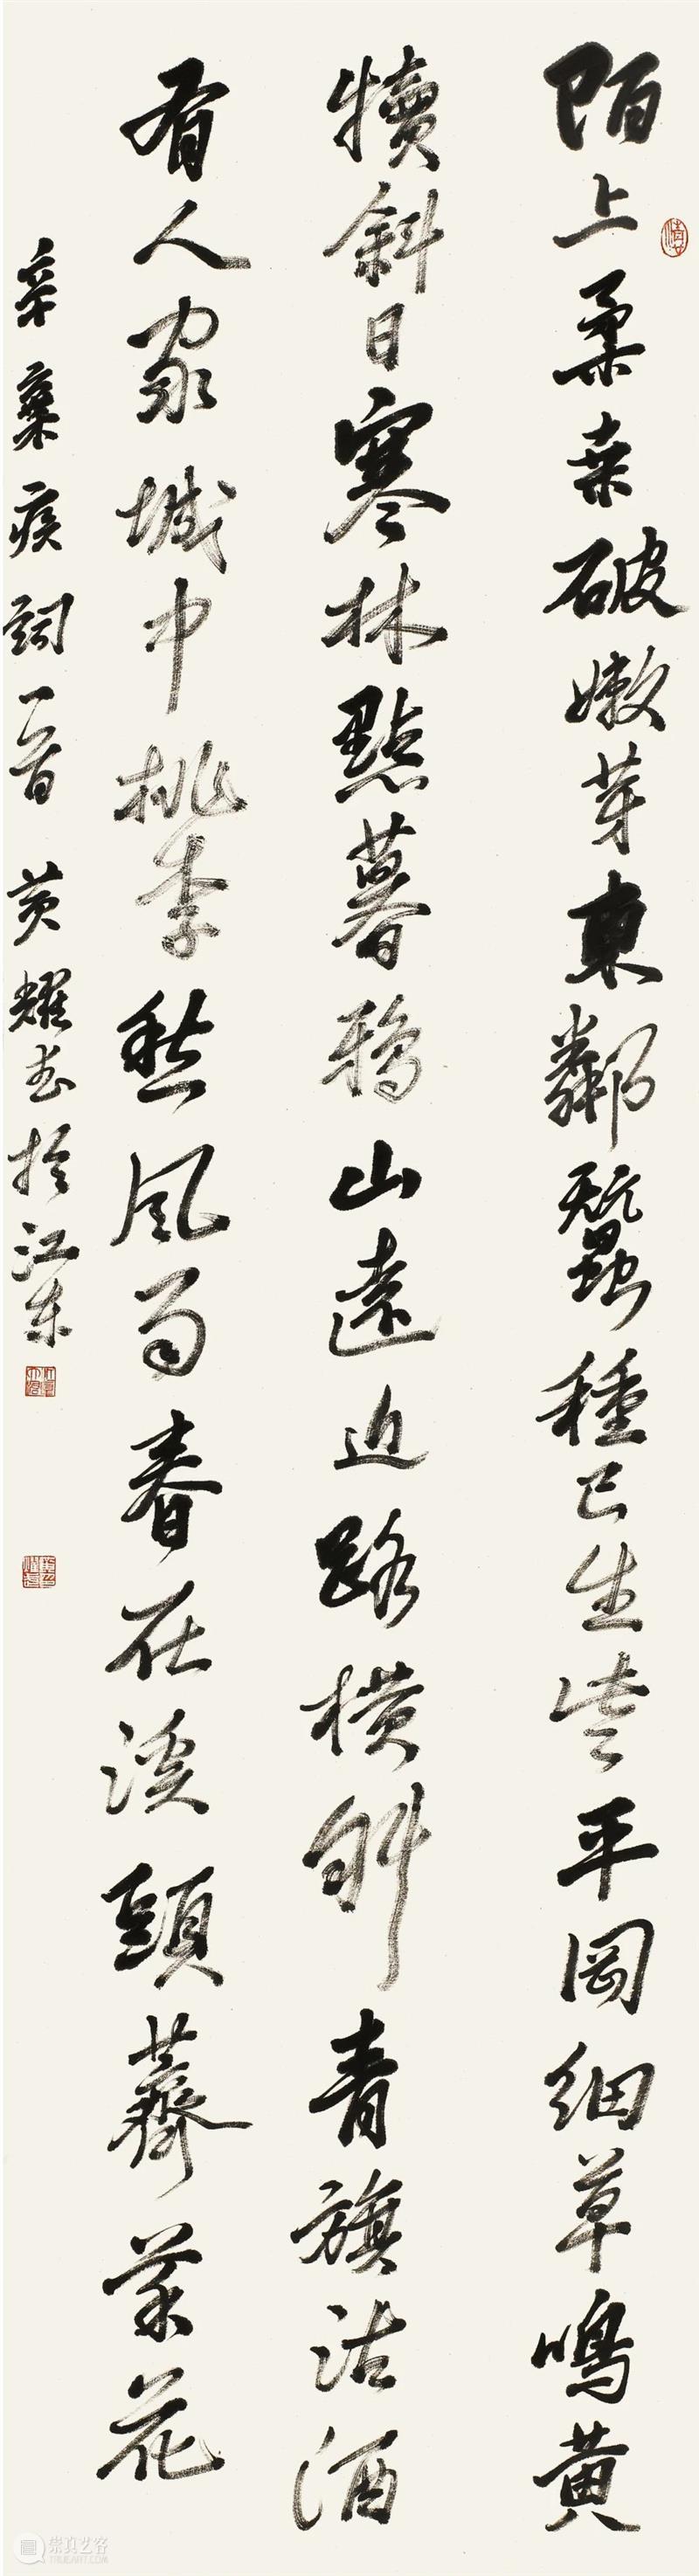 陌上柔桑破嫩芽東鄰蠶種已生些平岡細草鳴黄
犢斜日寒林點暮鴉山遠近路橫斜青旗沽酒
有人家城中桃李愁風雨春在溪頭薺菜花
辛棄疾詞一首 黄耀书於江东
崇真艺客
TRUEART.COM